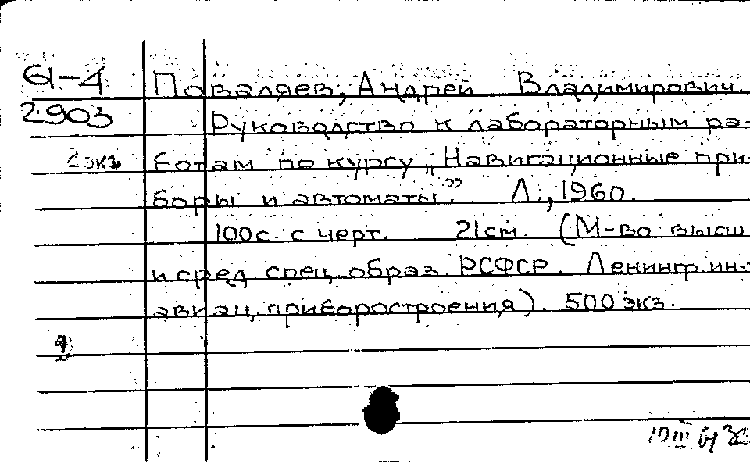 61-4 Поваляев, Андрей Владимирович.
2903 Руководство к лабораторным ра-
2 экз ботам по курсу „Навигационные при-
боры и автоматы". Л., 1960.
100с. с черт. 21см. (М-во высш
и сред спец. образ. РСФСР. Ленингр. ин-
авиац. приборостроения). 500 экз.